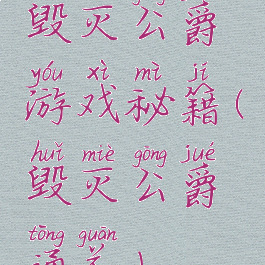 毁灭公爵
yóu xì mì jí
游戏秘籍(
huǐ miè gōng jué
毁灭公爵
tōng guān
通关)